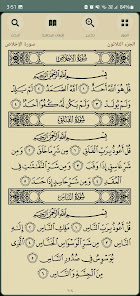 3:51
84%
الجزء الثلاثون
سورة الإخلاص
سُورَةُ الإِخْلَاصِ
بِسْمِ اللَّهِ الرَّحْمَٰنِ الرَّحِيمِ
قُلْ هُوَ اللَّهُ أَحَدٌ ١ اللَّهُ الصَّمَدُ ٢ لَمْ يَلِدْ
وَلَمْ يُولَدْ ٣ وَلَمْ يَكُن لَّهُ كُفُوًا أَحَدٌ ٤
سُورَةُ الفَلَقِ
بِسْمِ اللَّهِ الرَّحْمَٰنِ الرَّحِيمِ
قُلْ أَعُوذُ بِرَبِّ الْفَلَقِ ١ مِن شَرِّ مَا خَلَقَ ٢ وَمِن
شَرِّ غَاسِقٍ إِذَا وَقَبَ ٣ وَمِن شَرِّ النَّفَّاثَاتِ فِي
الْعُقَدِ ٤ وَمِن شَرِّ حَاسِدٍ إِذَا حَسَدَ ٥
سُورَةُ النَّاسِ
بِسْمِ اللَّهِ الرَّحْمَٰنِ الرَّحِيمِ
قُلْ أَعُوذُ بِرَبِّ النَّاسِ ١ مَلِكِ النَّاسِ ٢
إِلَٰهِ النَّاسِ ٣ مِن شَرِّ الْوَسْوَاسِ الْخَنَّاسِ ٤
الَّذِي يُوَسْوِسُ فِي صُدُورِ النَّاسِ ٥
مِنَ الْجِنَّةِ وَالنَّاسِ ٦
٦٠٤